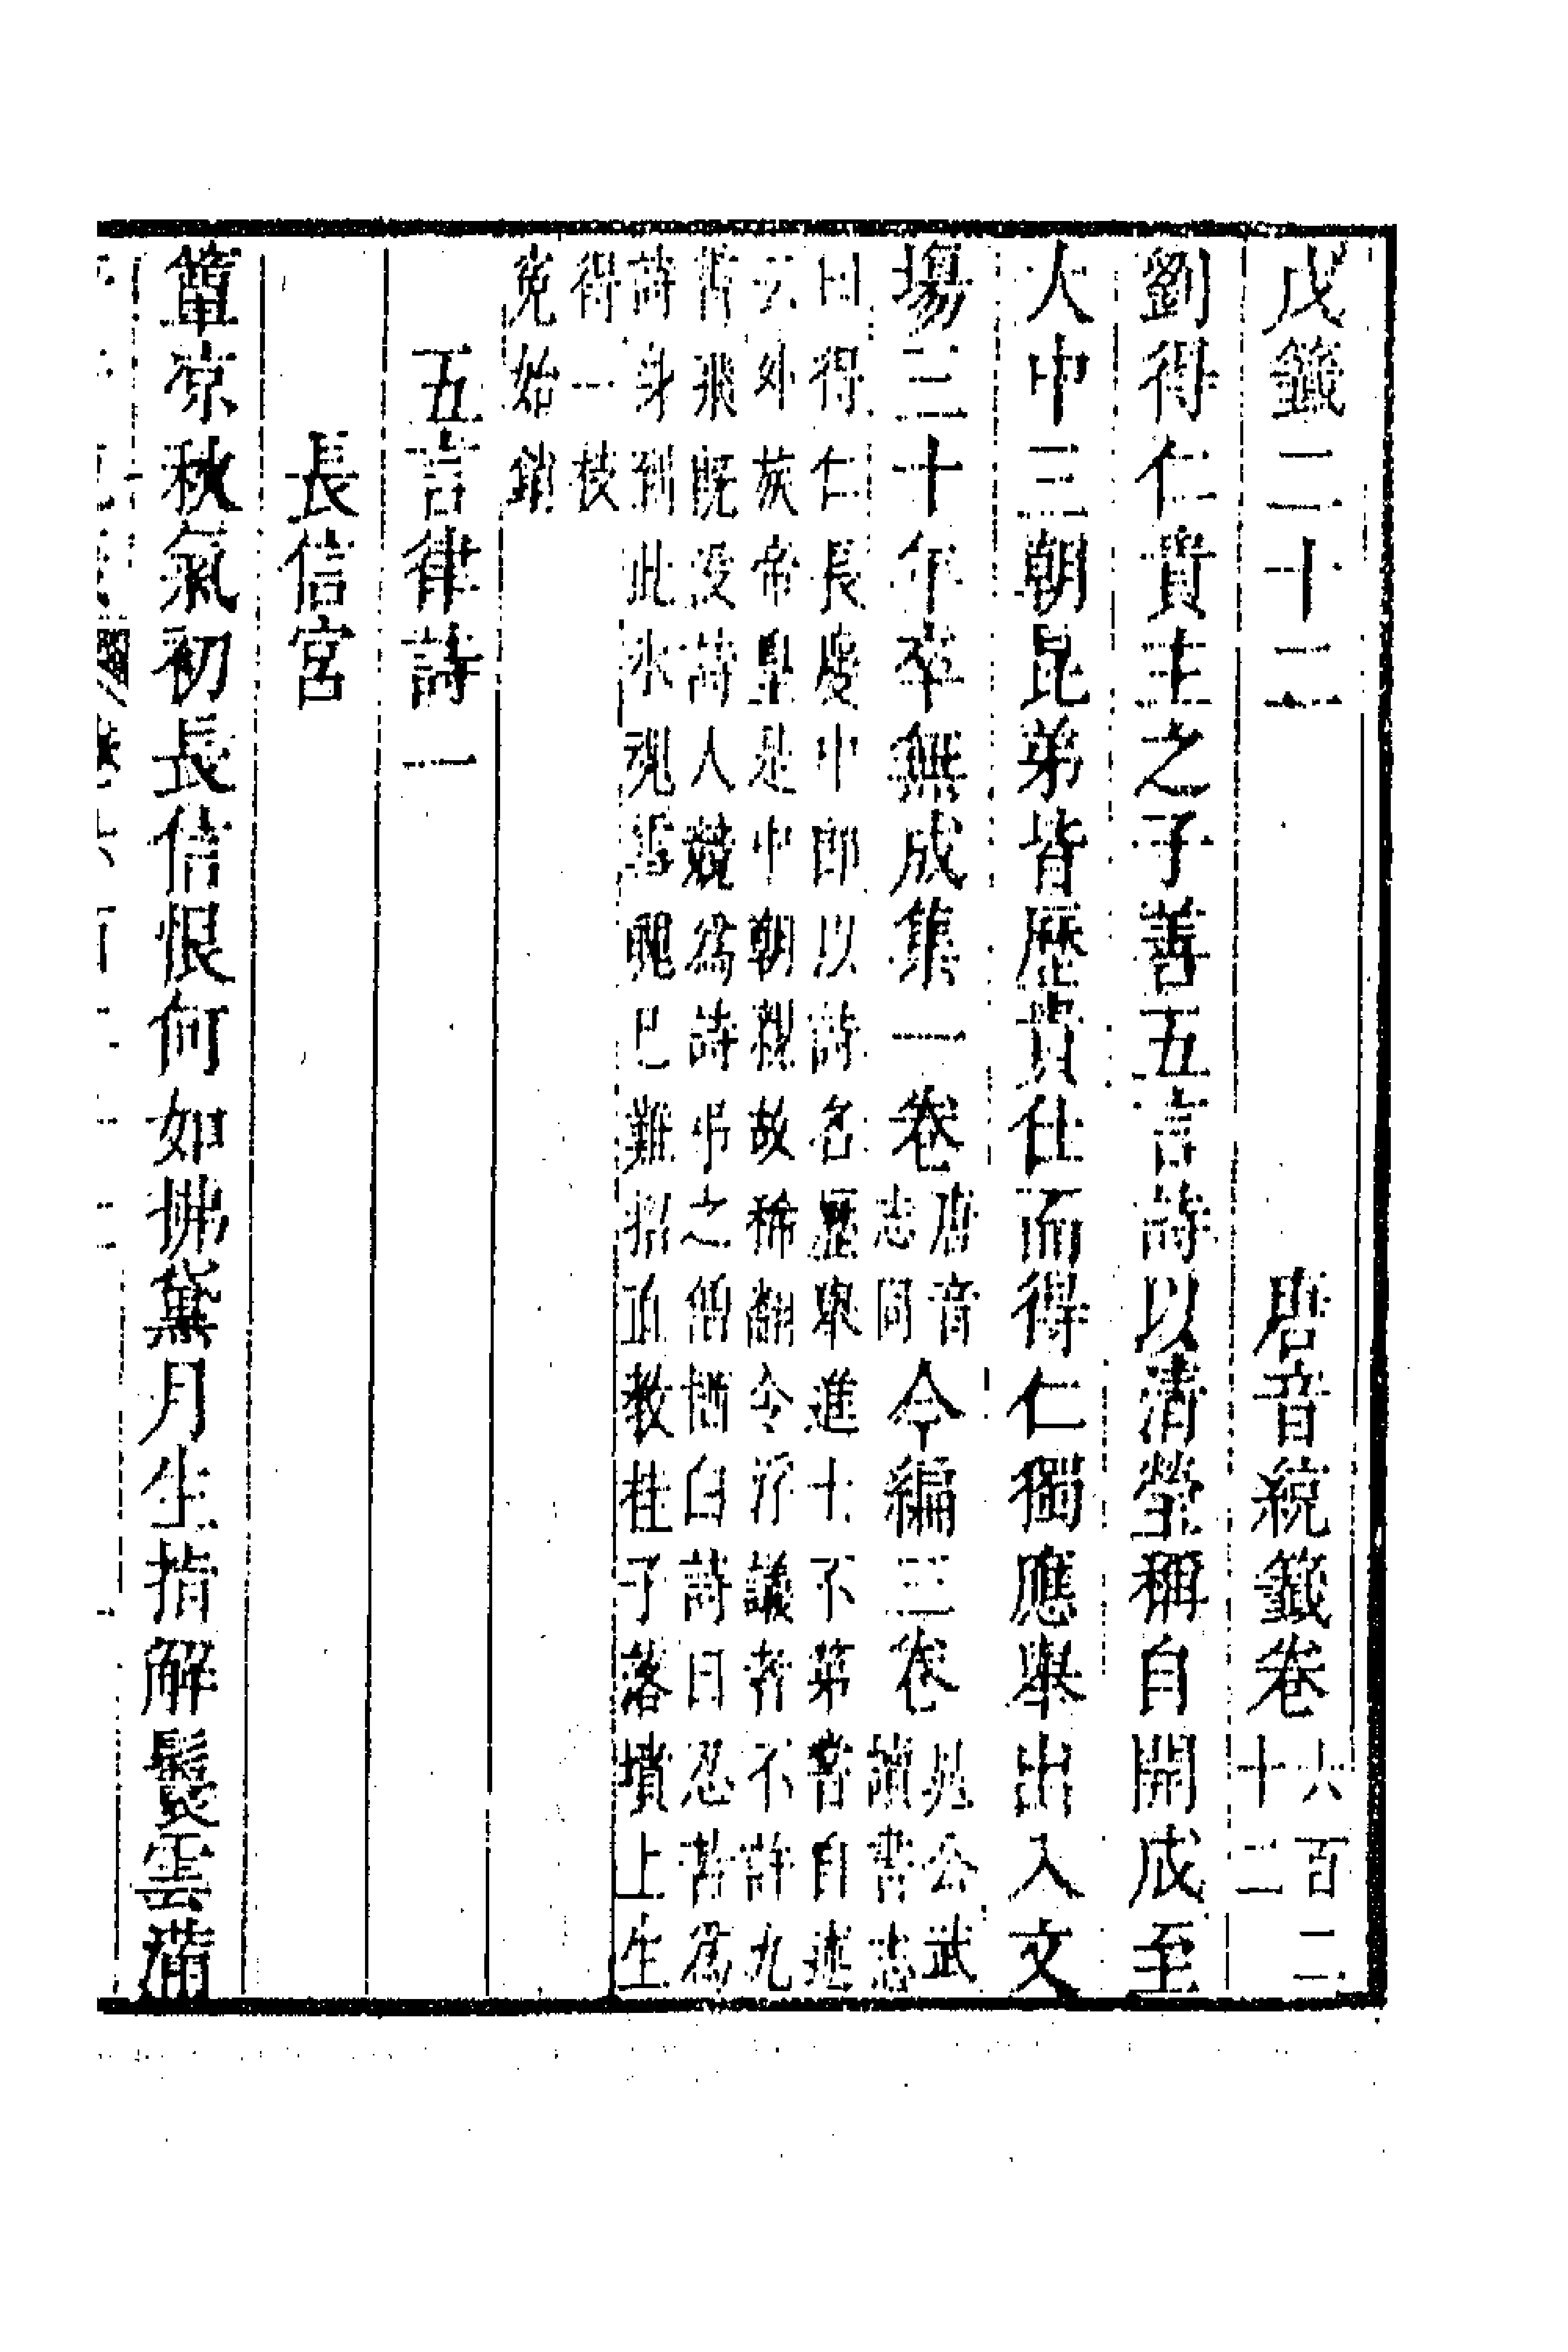 戊籤二十二　唐音統籤卷六百二十二
劉得仁貴主之子善五言詩以清瑩稱自開成至
大中三朝昆弟皆歷貴仕而得仁獨應舉出入文
場三十年卒無成集一卷唐音志同今編三卷晁公武讀書志
曰得仁長慶中即以詩名歷舉進士不第嘗自述
云外族帝皇是中朝親故稀翻令浮議者不許九
霄飛既没詩人競爲詩弔之僧栖白詩曰忍苦爲
詩身到此冰魂雪魄已難招直教桂子落墳上生
得一枝
冤始銷
五言律詩一
長信宮
簟凉秋氣初長信恨何如拂黛月生指解鬟雲滿